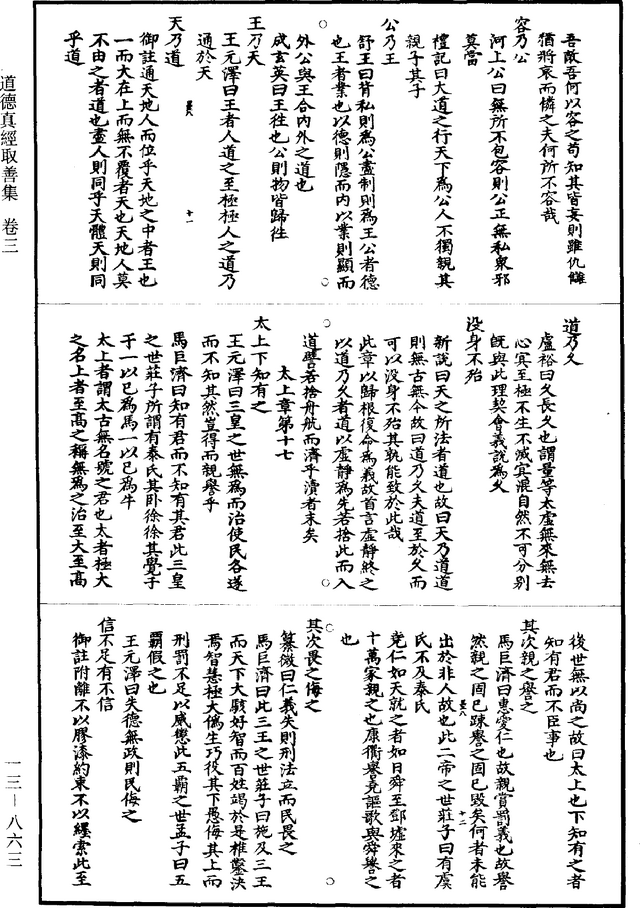 吾敵吾何以容之苟知其皆妄則雖仇讎
猶將哀而憐之夫何所不容哉
容乃公
河上公曰無所不包容則公正無私眾邪
莫當
禮記曰大道之行天下為公人不獨親其
親子其子
公乃王
舒王曰背私則為公盡制則為王公者德
也王者業也以德則隱而內以業則顯而
外公與王合內外之道也
成玄英曰王往也公則物皆歸往
王乃天
王元澤曰王者人道之至極極人之道乃
通於天
天乃道
御註通天地人而位乎天地之中者王也
一而大在上而無不覆者天也天地人莫
不由之者道也盡人則同乎天體天則同
乎道
道乃久
盧裕曰久長久也謂量等太虛無來無去
心冥至極不生不滅冥混自然不可分別
既與此理契會義說為久
沒身不殆
新說曰天之所法者道也故曰天乃道道
則無古無今故曰道乃久夫道至於久而
可以沒身不殆其孰能致於此哉
此章以歸根復命為義故首言虛靜終之
以道乃久者道以虛靜為先若捨此而入
道譬若捨舟航而濟乎瀆者末矣
太上章第十七
太上下知有之
王元澤曰三皇之世無為而治使民各遂
而不知其然豈得而親譽乎
馬巨濟曰知有君而不知有其君此三皇
之世莊子所謂有泰氏其臥徐徐其覺于
于一以已為馬一以已為牛
太上者謂太古無名號之君也太者極大
之名上者至高之稱無為之治至大至高
後世無以尚之故曰太上也下知有之者
知有君而不臣事也
其次親之譽之
馬巨濟曰惠愛仁也故親賞罰義也故譽
然親之固已踈譽之固已毀矣何者未能
出於非人故也此二帝之世莊子曰有虞
氏不及泰氏
堯仁如天就之者如日舜至鄧墟來之者
十萬家親之也康衢譽堯謳歌與舜譽之
也
其次畏之侮之
纂微曰仁義失則刑法立而民畏之
馬巨濟曰此三王之世莊子曰施及三王
而天下大駭好智而百姓竭於是椎鑿決
焉智慧極大偽生巧役其下愚侮其上而
刑罰不足以威懲此五霸之世孟子曰五
霸假之也
王元澤曰失德無政則民侮之
信不足有不信
御註附離不以膠漆約束不以纆索此至
道德真經取善集　卷三
一三－八六三